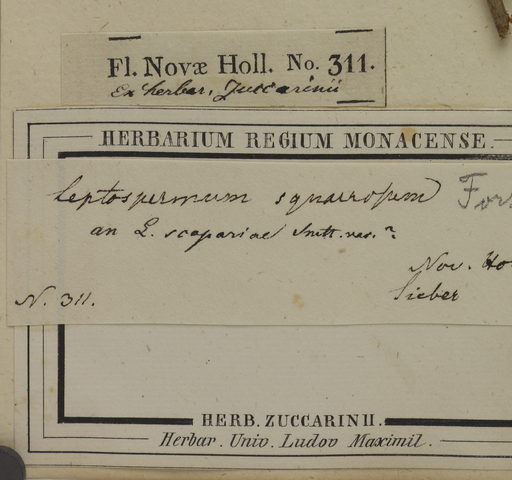 Fl. Novæ Holl. No. 311.
Ex herbar. Zuccarinii
HERBARIUM REGIUM MONACENSE.
Leptospermum squarrosum
an L. scopariae Smith. var.?
Nov. Ho
Sieber
N. 311.
HERB. ZUCCARINII.
Herbar. Univ. Ludov Maximil.